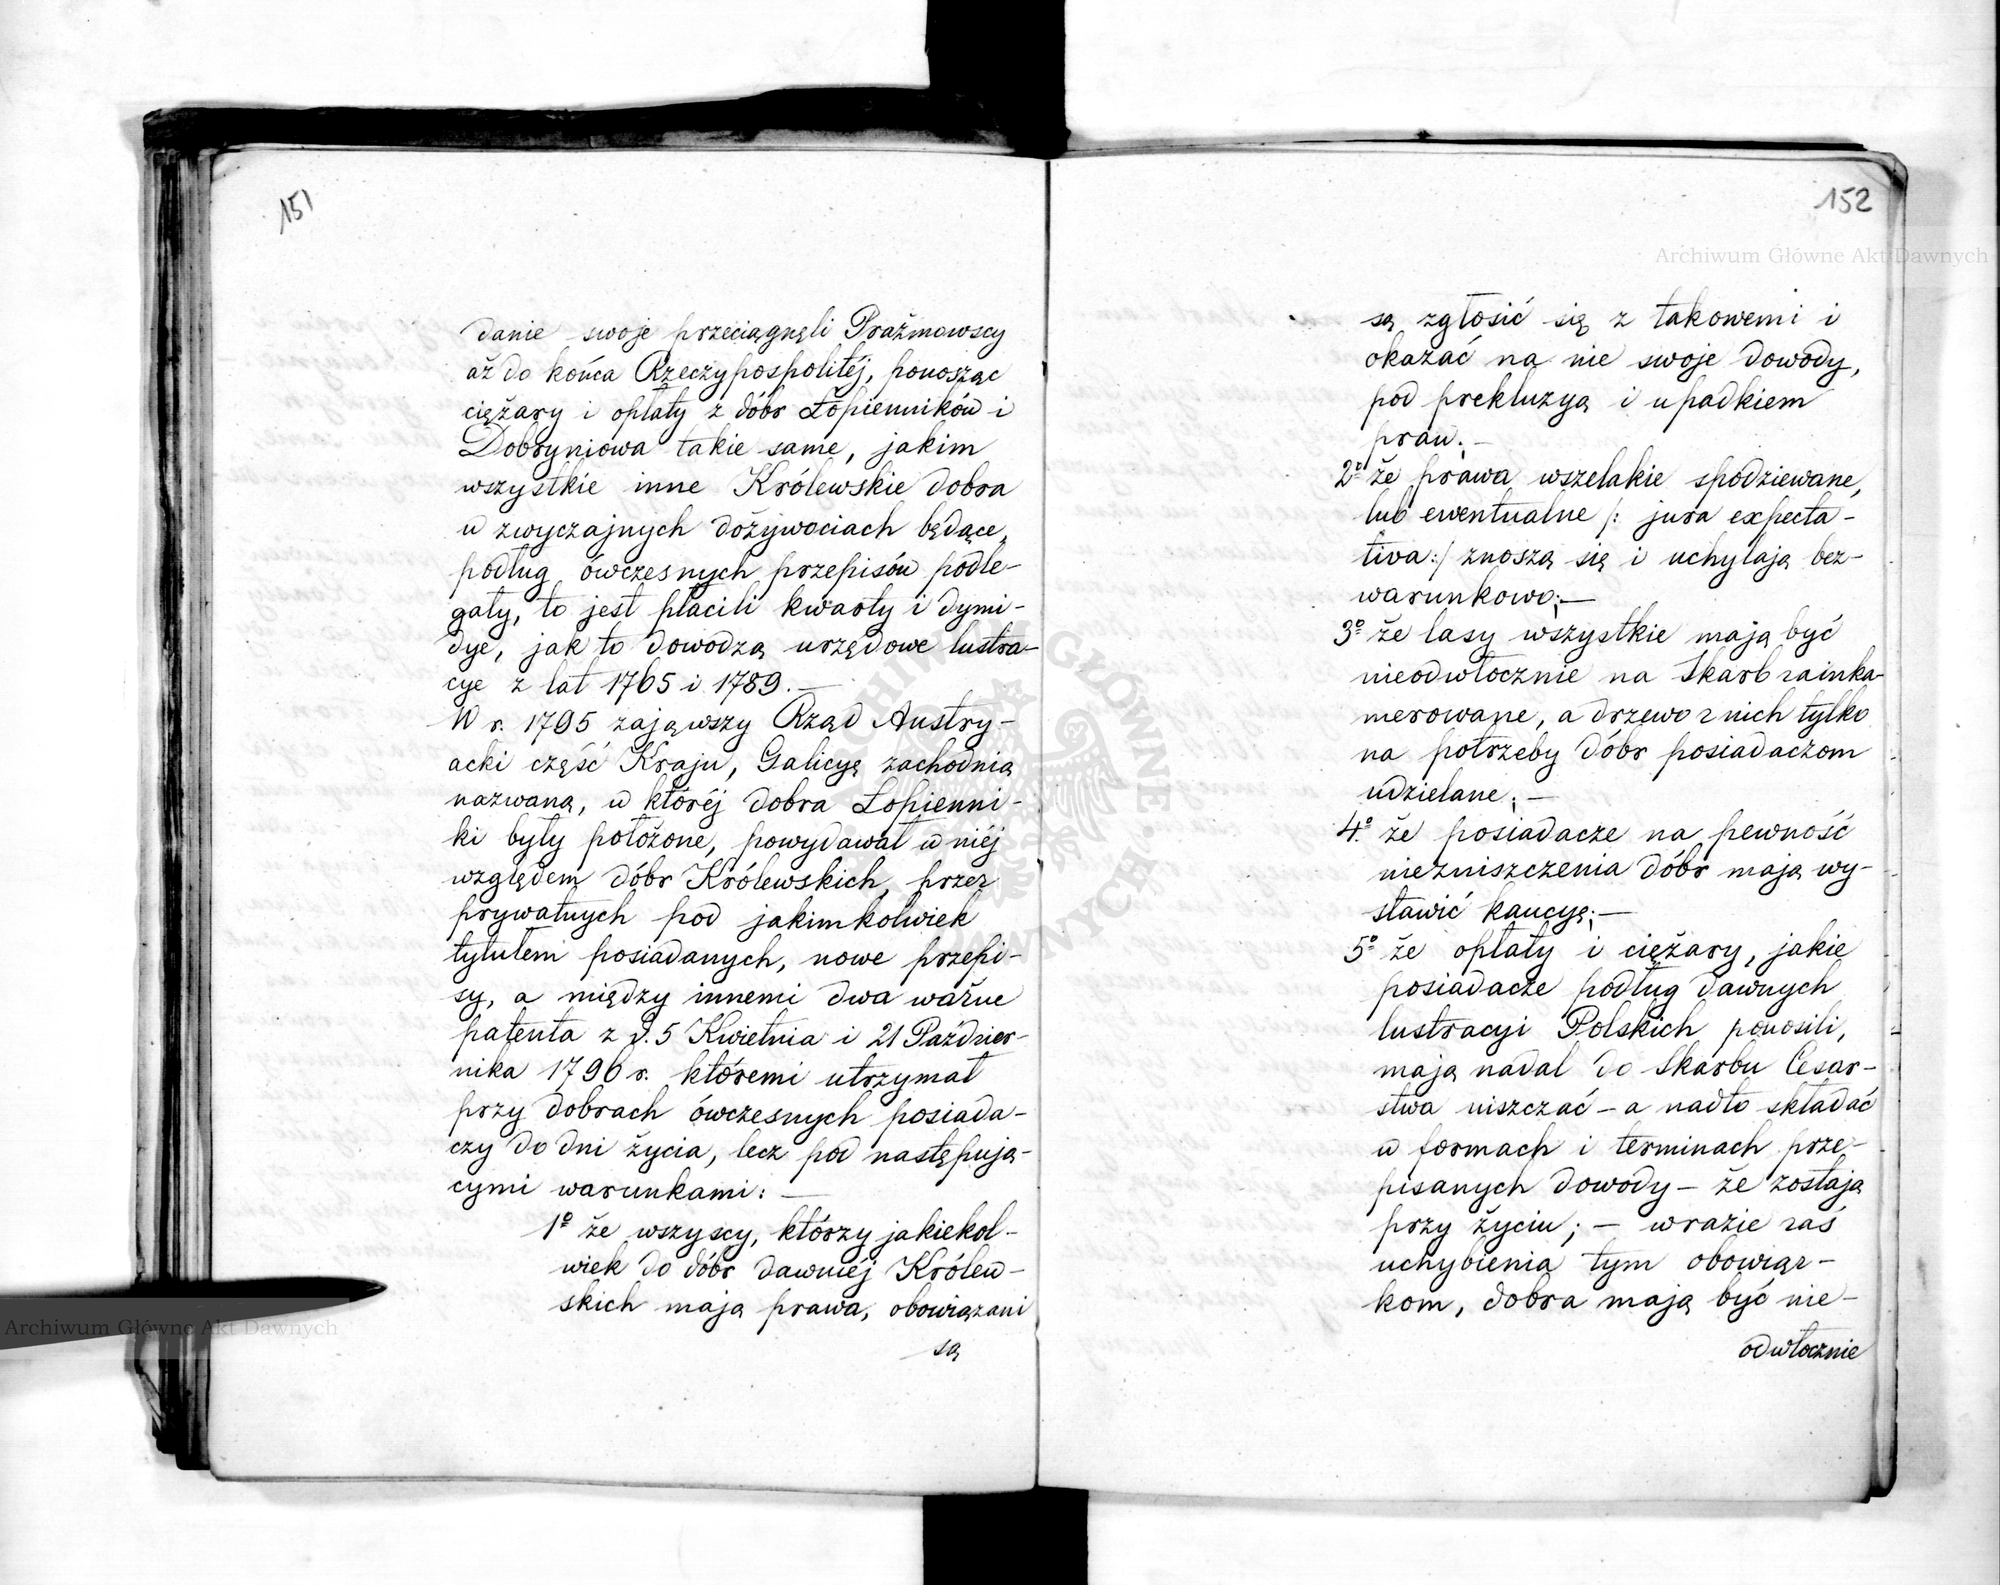 151
danie swoje przeciągnęli Prażmowscy
aż do końca Rzeczypospolitéj, ponosząc
ciężary i opłaty z dóbr Łopienników i
Dobryniowa takie same, jakim
wszystkie inne Królewskie dobra
w zwyczajnych dożywociach będące,
podług ówczesnych przepisów podle-
gały, to jest płacili kwarty i dymi-
dye, jak to dowodzą urzędowe lustra-
cye z lat 1765 i 1789. —
W r. 1795 zająwszy Rząd Austry-
acki część Kraju, Galicyę zachodnią
nazwaną, w któréj dobra Łopienni-
ki były położone, powydawał w niéj
względem dóbr Królewskich, przez
prywatnych pod jakimkolwiek
tytułem posiadanych, nowe przepi-
sy, a między innemi dwa ważne
patenta z d. 5 Kwietnia i 21 Paździer-
nika 1796 r. któremi utrzymał
przy dobrach ówczesnych posiada-
czy do dni życia, lecz pod następują-
cymi warunkami: —
1º że wszyscy, którzy jakiekol-
wiek do dóbr dawniéj Królew-
skich mają prawa, obowiązani
są
152
Archiwum Główne Akt Dawnych
są zgłosić się z takowemi i
okazać na nie swoje dowody,
pod prekluzyą i upadkiem
praw; —
2º że prawa wszelakie spodziewane,
lub ewentualne /: jura expecta-
tiva :/ znoszą się i uchylają bez-
warunkowo; —
3º że lasy wszystkie mają być
nieodwłocznie na Skarb zainka-
merowane, a drzewo z nich tylko
na potrzeby dóbr posiadaczom
udzielane; —
4º że posiadacze na pewność
niezniszczenia dóbr mają wy-
stawić kaucyę; —
5º że opłaty i ciężary, jakie
posiadacze podług dawnych
lustracyi Polskich ponosili,
mają nadal do Skarbu Cesar-
stwa uiszczać – a nadto składać
w formach i terminach prze-
pisanych dowody – że zostają
przy życiu; – w razie zaś
uchybienia tym obowiąz-
kom, dobra mają być nie-
odwłocznie
Archiwum Główne Akt Dawnych